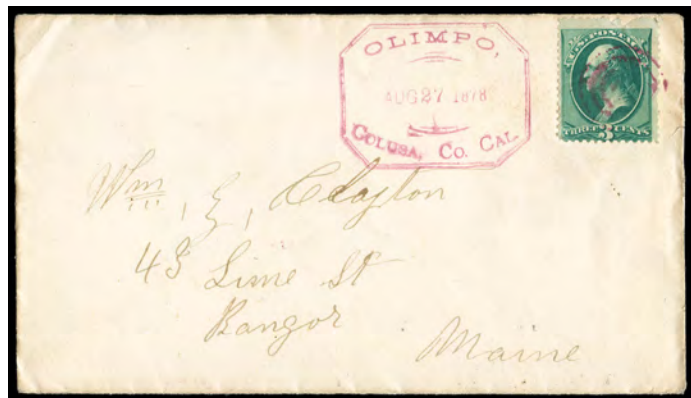 OLIMPO,
AUG 27 1878
COLUSA, CO. CAL.
U.S. POSTAGE
THREE 3 CENTS
Wm, E, Clayton
43 Lime St
Bangor
Maine